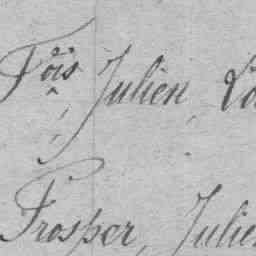 Fois, Julien, Lo
Prosper, Julien